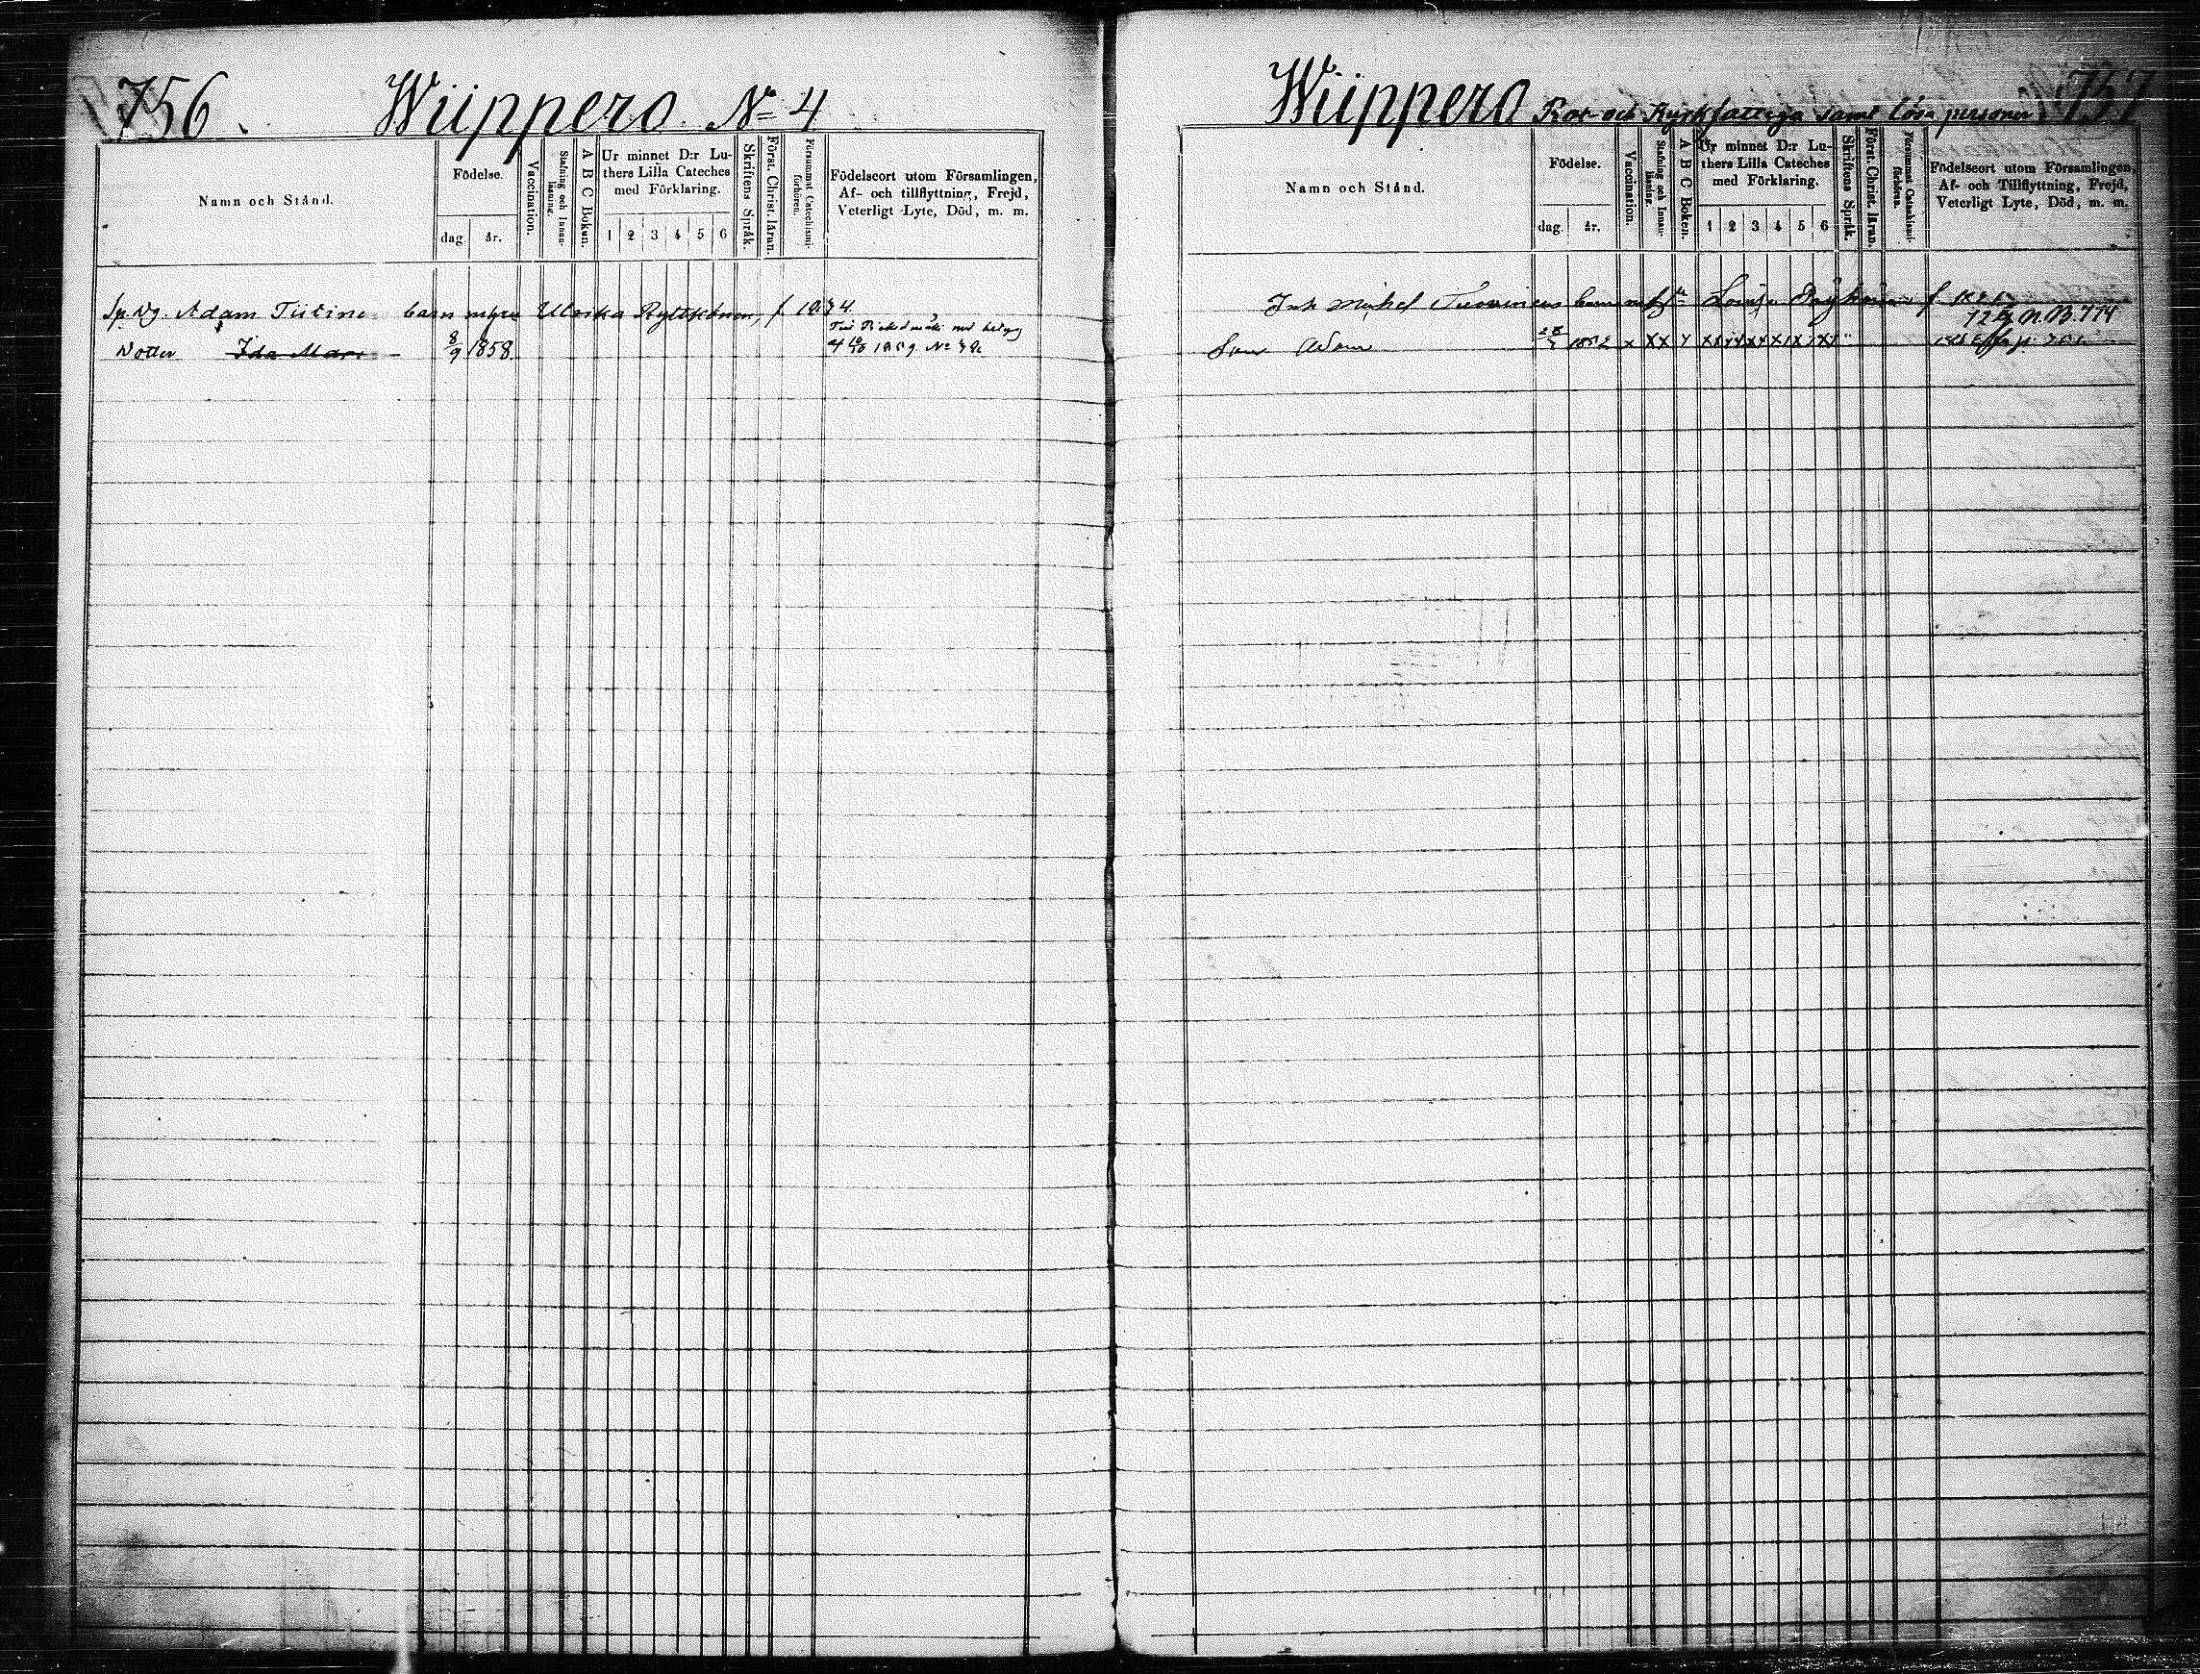 756. Wiippero No 4
Namn och Stånd.
Födelse.
dag
år.
Vaccination.
Stafning och Innanläsning.
A B C Boken.
Ur minnet D:r Luthers Lilla Cateches med Förklaring.
1 2 3 4 5 6
Skriftens Språk.
Först. Christ. läran.
Försummat Catechismiförhören.
Födelseort utom Församlingen,
Af- och tillflyttning, Frejd,
Veterligt Lyte, Död, m. m.
Adam Ulrika f
Dotter Ida Mari 8/9 1858
Wiippero Rot- och Kyrkfattiga samt lösa personer 757
Namn och Stånd.
Födelse.
dag.
år.
Vaccination.
Stafning och Innanläsning.
A B C Boken.
Ur minnet D:r Luthers Lilla Cateches med Förklaring.
1 2 3 4 5 6
Skriftens Språk.
Först. Christ. läran.
Försummat Catechismiförhören.
Födelseort utom Församlingen,
Af- och Tillflyttning, Frejd,
Veterligt Lyte, Död, m. m.
Inh Mickel f
Son Adam 1852